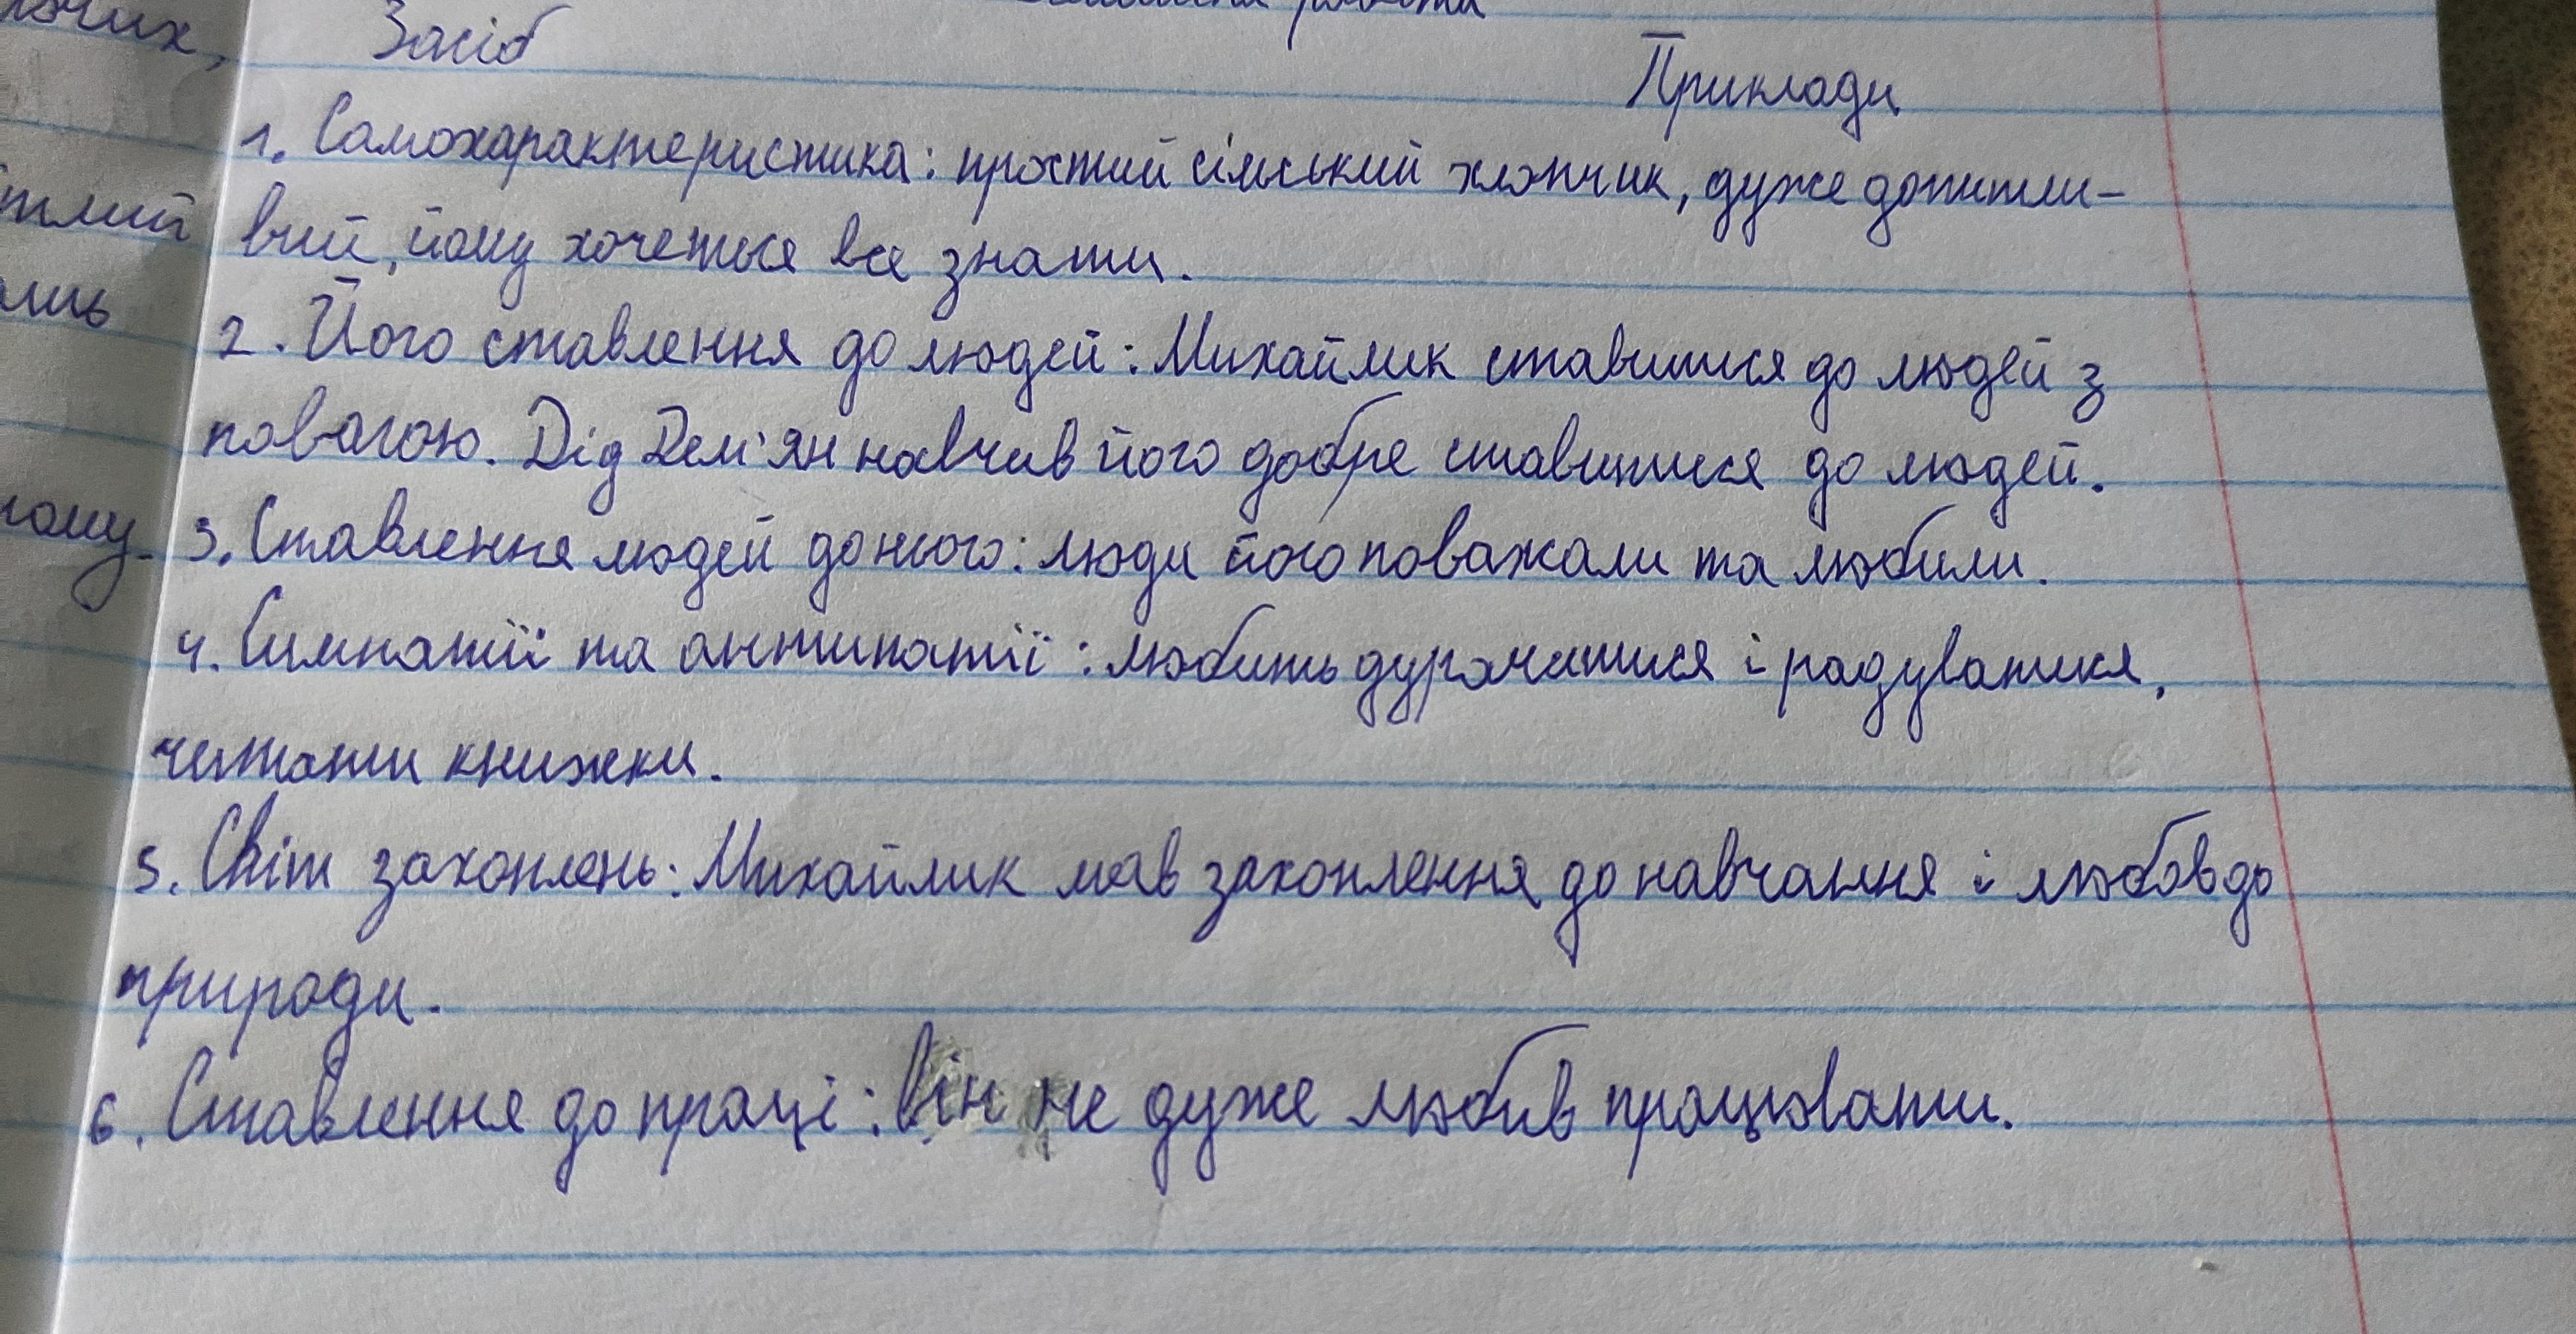 робота
Засіб
Приклади
1. Самохарактеристика: простий сільський хлопчик, дуже допитли-
вий, йому хочеться все знати.
2. Його ставлення до людей: Михайлик ставитися до людей з
повагою. Дід Дем'ян навчив його добре ставитися до людей.
3. Ставлення людей до нього: люди його поважали та любили.
4. Симпатії та антипатії: любить дурачитися і радуватися,
читати книжки.
5. Світ захоплень: Михайлик мав захоплення до навчання і любов до
природи.
6. Ставлення до праці: він не дуже любив працювати.